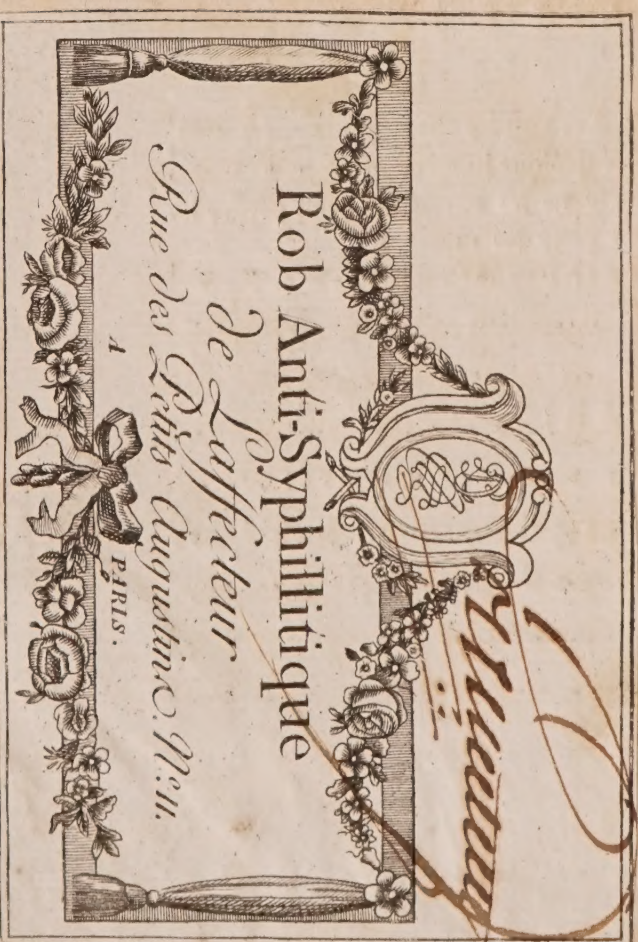 Rob Anti-Syphillitique
de Laffecteur
Rue des Petits Augustins. N.° 11.
A PARIS.